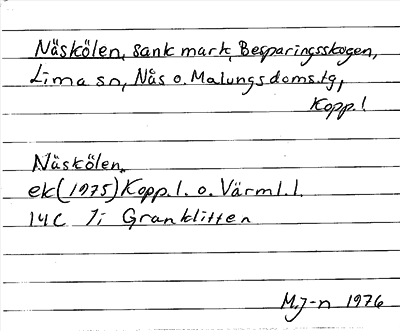 Näskölen, sank mark, Besparingsskogen,
Lima sn, Nås o. Malungs doms.tg,
Kopp. l
Näskölen.
ek (1975) Kopp. l. o. Värml. l.
14C 7i Granklitten
M.J-n 1976